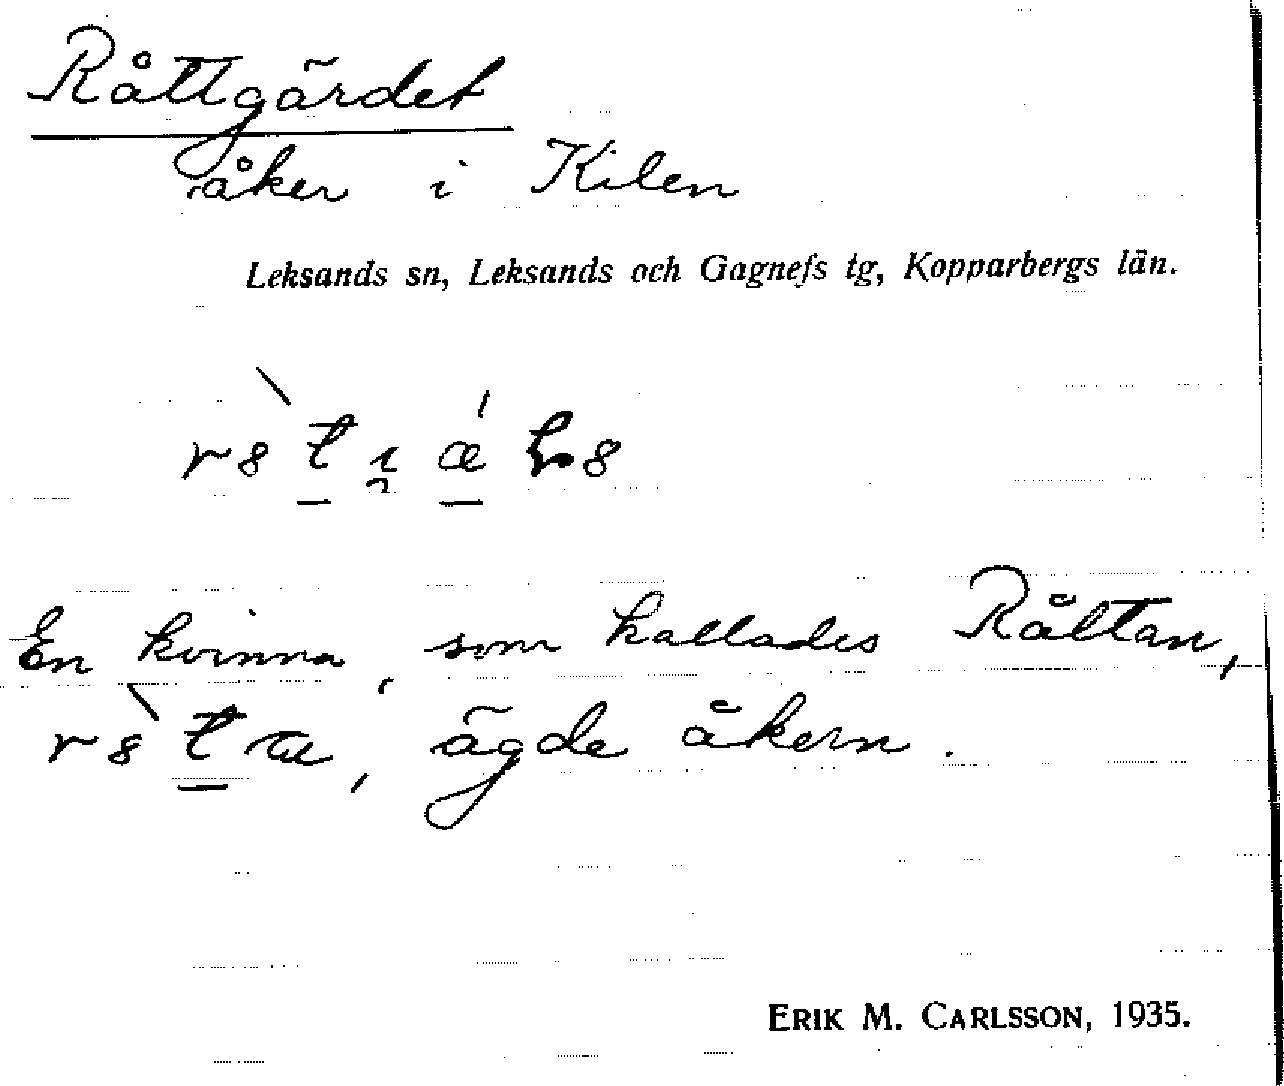 Råttgärdet
åker i Kilen
Leksands sn, Leksands och Gagnefs tg, Kopparbergs län.
En kvinna, som kallades Råttan,
ägde åkern.
ERIK M. CARLSSON, 1935.